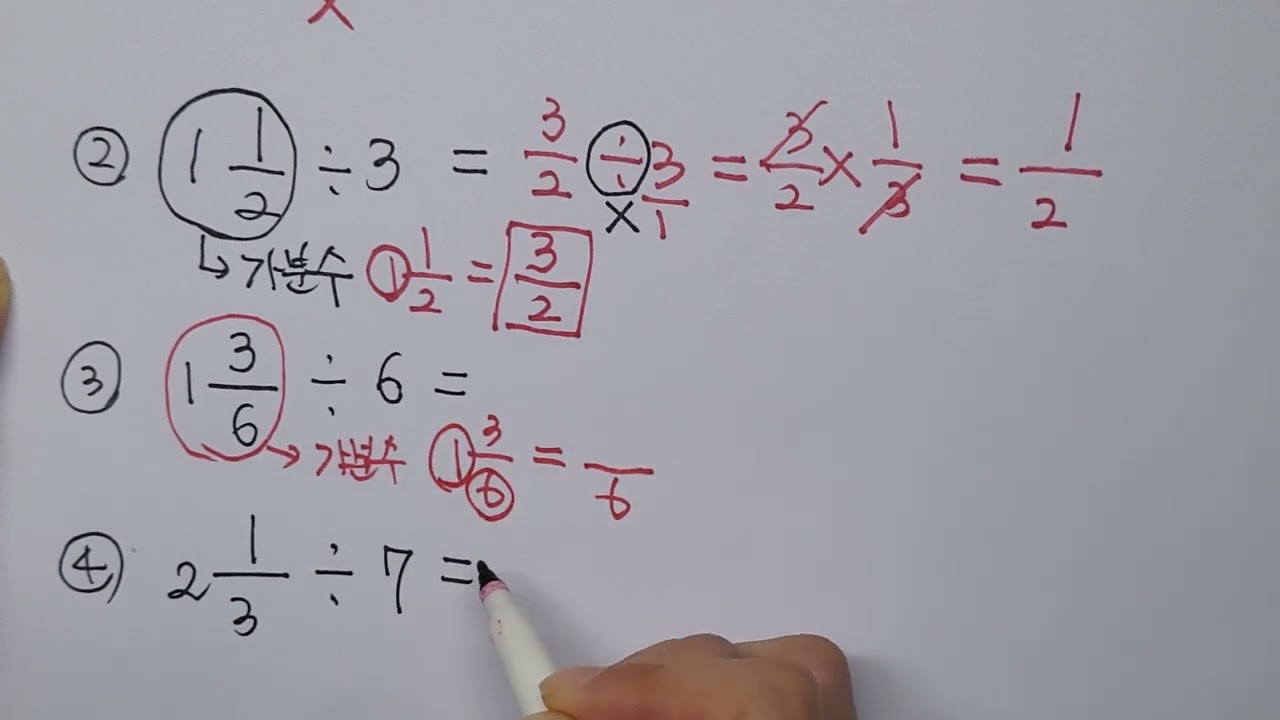 ×
② 1 1/2 ÷ 3 = 3/2 ÷ 3/1 = 3/2 × 1/3 = 1/2
×
↳ 가분수 1 1/2 = 3/2
③ 1 3/6 ÷ 6 =
→ 가분수 1 3/6 = /6
④ 2 1/3 ÷ 7 =